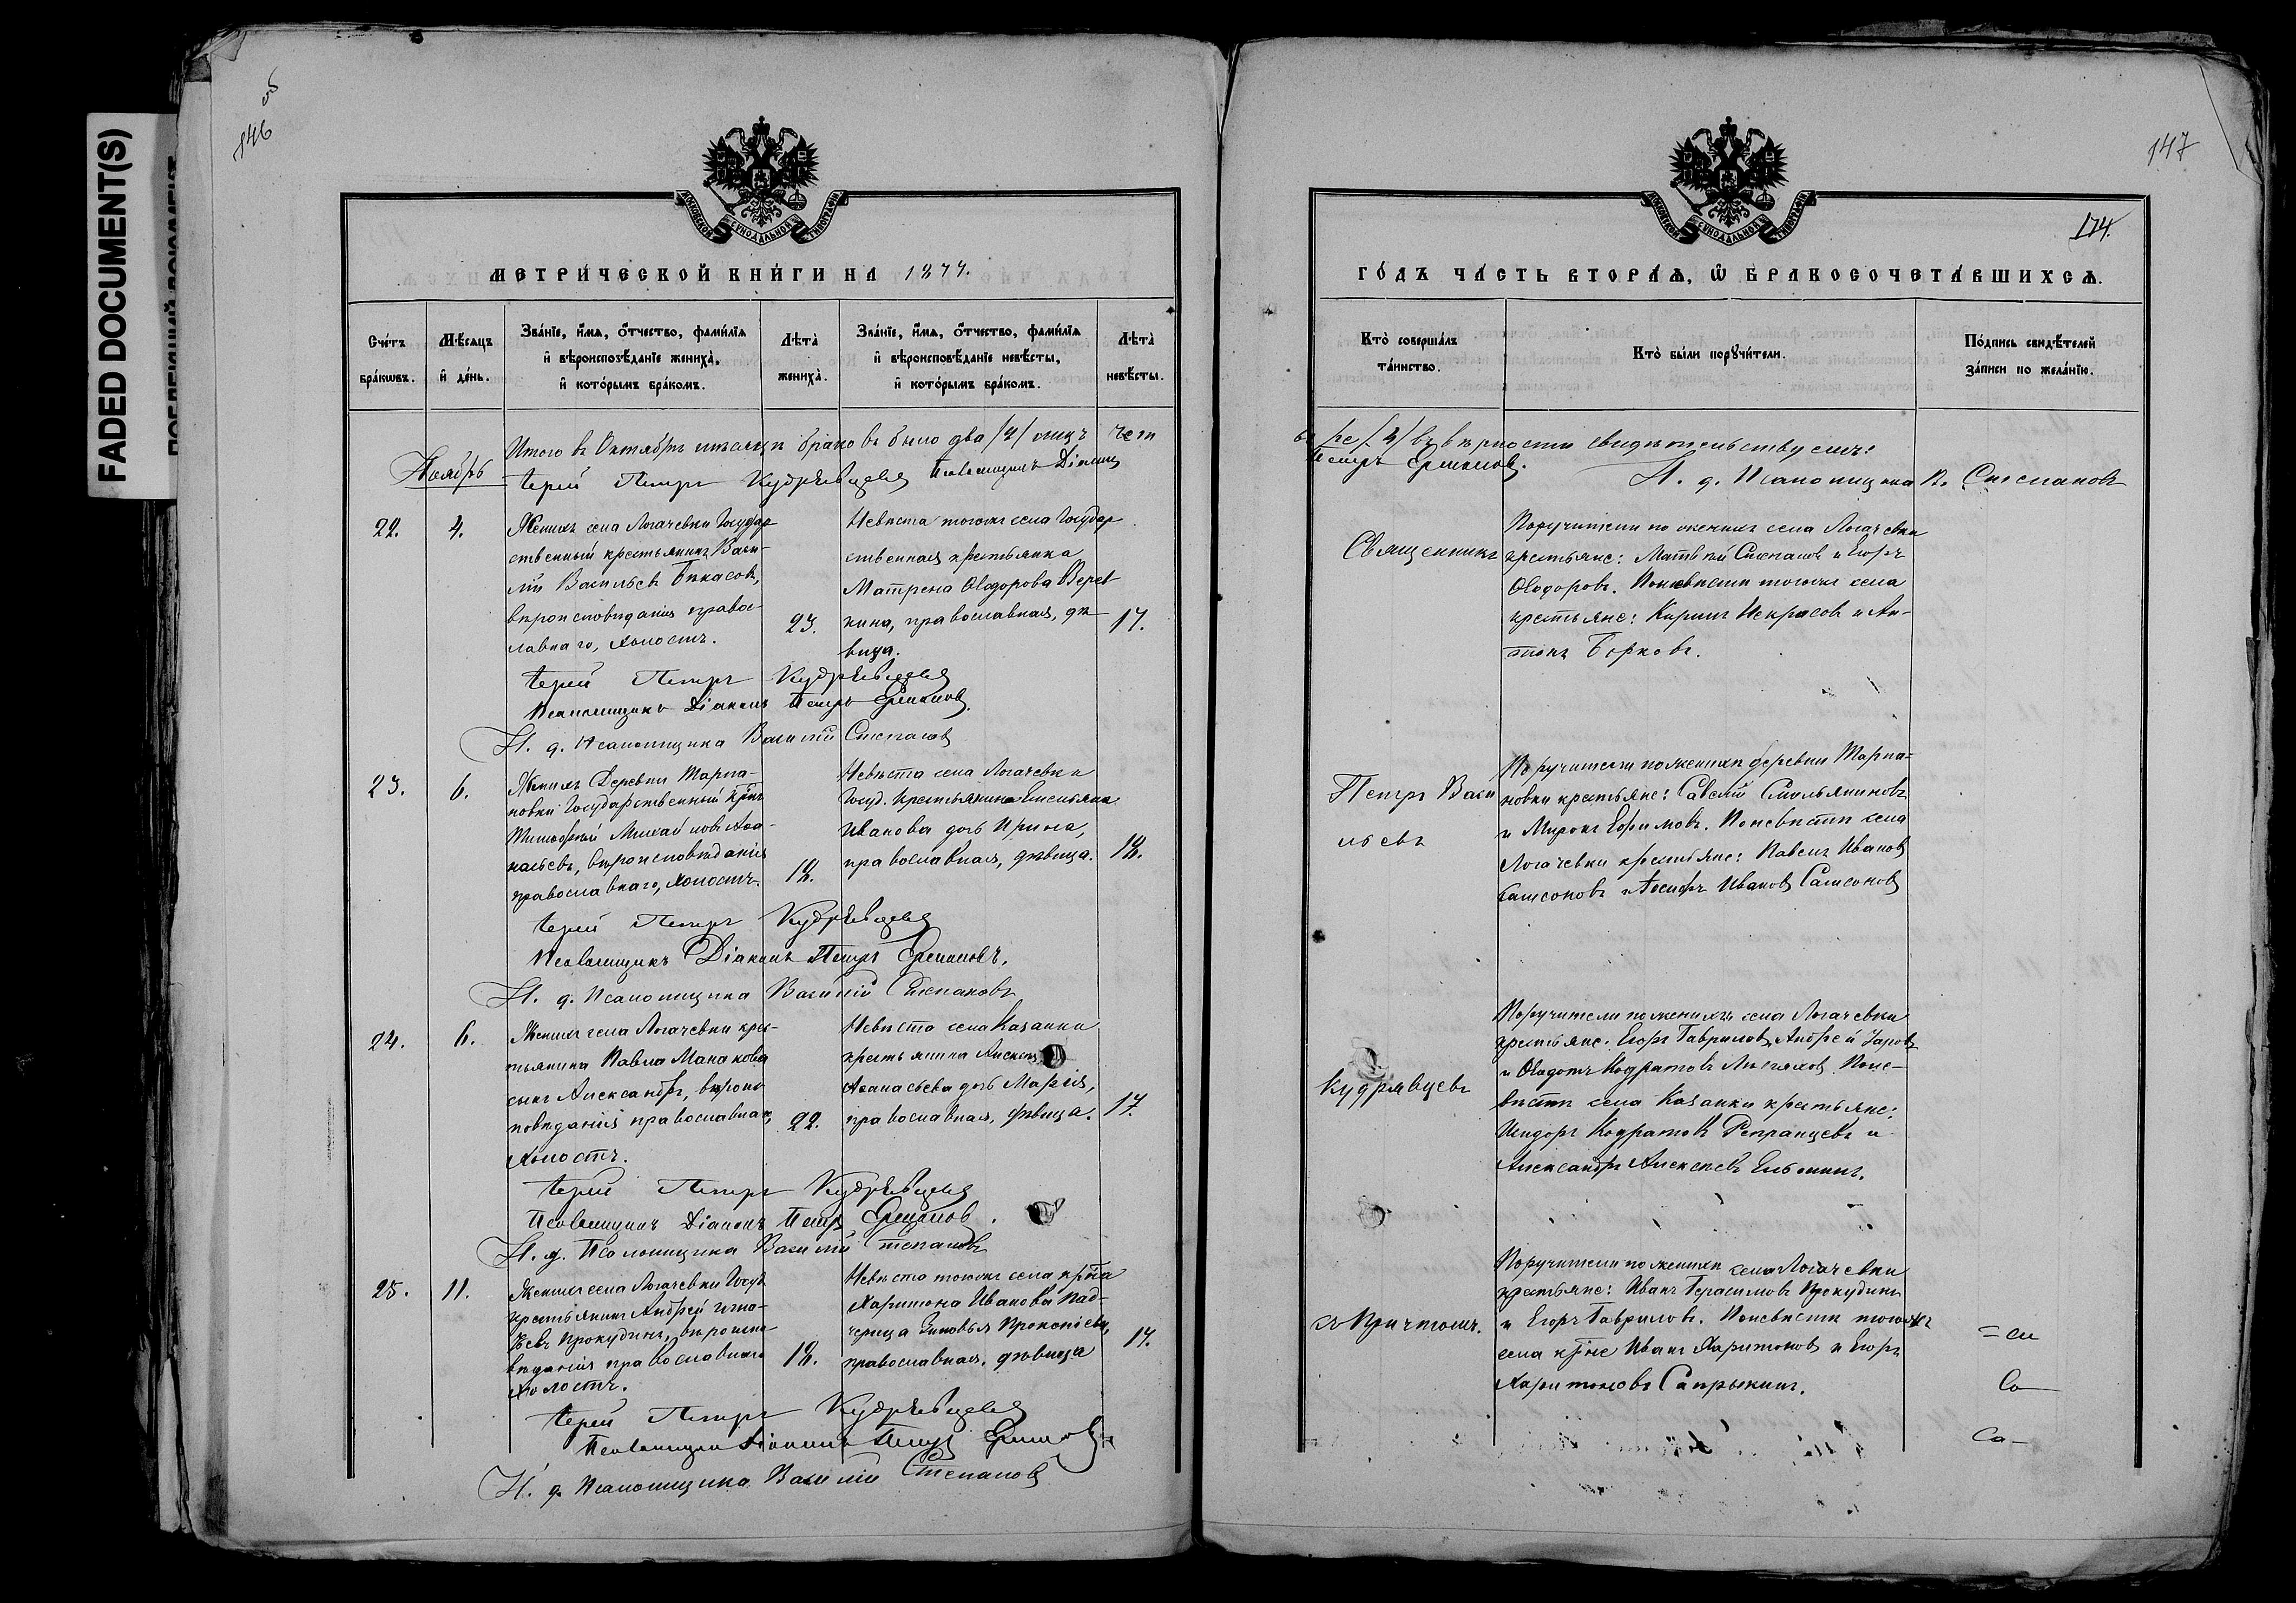 FADED DOCUMENT(S)
146
147
174.
МОСКОВСКОЙ СѴНОДАЛЬНОЙ ТИПОГРАФІИ
МОСКОВСКОЙ СѴНОДАЛЬНОЙ ТИПОГРАФІИ
МЕТРИЧЕСКОЙ КНИГИ НА 1874.
Счетъ браковъ.
Мѣсяцъ и день.
Званіе, имя, отчество, фамилія
и вѣроисповѣданіе жениха,
и которымъ бракомъ.
Лѣта жениха.
Званіе, имя, отчество, фамилія
и вѣроисповѣданіе невѣсты,
и которымъ бракомъ.
Лѣта невѣсты.
Итого въ Октябрѣ мѣсяцѣ браковъ было два
Ноябрь
Іерей Петръ Кудрявцевъ Псаломщикъ Діаконъ
22.
4.
Женихъ села Логачевки Государ
ственный крестьянинъ Васи-
лій Васильевъ Бекасовъ,
вѣроисповѣданія право-
славнаго, холостъ.
23.
Невѣста тогоже села Государ
ственная крестьянка
Матрена Ѳедорова Верев
кина, православная, дѣ
вица.
17.
Іерей Петръ Кудрявцевъ
Псаломщикъ Діаконъ Петръ Ермаковъ.
И. д. Псаломщика Василій Степановъ
23.
6.
Женихъ Деревни Тарпа-
новки Государственный крнъ
Тимофей Михайловъ Аѳа-
насьевъ, вѣроисповѣданія
православнаго, холостъ.
18.
Невѣста села Логачевки
Госуд. крестьянина Емельяна
Иванова дочь Ирина,
православная, дѣвица.
18.
Іерей Петръ Кудрявцевъ
Псаломщикъ Діаконъ Петръ Ермаковъ.
И. д. Псаломщика Василій Степановъ
24.
6.
Женихъ села Логачевки крес-
тьянина Павла Манакова
сынъ Александръ, вѣроис
повѣданія православнаго,
холостъ.
22.
Невѣста села Казанки
крестьянина Алексѣя
Аѳанасьева дочь Марія,
православная, дѣвица.
17.
Іерей Петръ Кудрявцевъ
Псаломщикъ Діаконъ Петръ Ермаковъ.
И. д. Псаломщика Василій Степановъ
25.
11.
Женихъ села Логачевки Госуд
крестьянинъ Андрей Игна-
тьевъ Прокудинъ, вѣроиспо
вѣданія православнаго
холостъ.
18.
Невѣста тогоже села крна
Харитона Иванова пад-
черица Зиновья Прокопьева,
православная, дѣвица
17.
Іерей Петръ Кудрявцевъ
Псаломщикъ Діаконъ Петръ Ермаковъ
И. д. Псаломщика Василій Степановъ
ГОДЪ ЧАСТЬ ВТОРАЯ, Ѡ БРАКОСОЧЕТАВШИХСЯ.
Кто совершалъ таинство.
Кто были поручители.
Подпись свидѣтелей
записи по желанію.
вѣрности свидѣтельствуемъ:
Петръ Ермаковъ.
И. д. Псаломщика В. Степановъ
Священникъ
Петръ Васи
льевъ
Кудрявцевъ
съ Причтомъ.
Поручители по женихѣ села Логачевки
крестьяне: Матвѣй Степановъ и Егоръ
Ѳедоровъ. Поневѣстѣ тогоже села
крестьяне: Кирилъ Некрасовъ и Ан-
тонъ Борковъ.
Поручители поженихѣ деревни Тарпа-
новки крестьяне: Савелій Смольяниновъ
и Миронъ Ефимовъ. Поневѣстѣ села
Логачевки крестьяне: Павелъ Ивановъ
Самсоновъ и Іосифъ Ивановъ Самсоновъ
Поручители поженихѣ села Логачевки
крестьяне: Егоръ Гавриловъ, Андрей
и Ѳедотъ Кодратовъ. Поне-
вѣстѣ села Казанки крестьяне:
Исидоръ Кодратовъ и
Александръ Алексѣевъ
Поручители поженихѣ села Логачевки
крестьяне: Иванъ Герасимовъ Прокудинъ
и Егоръ Гавриловъ. Поневѣстѣ тогожъ
села крне Иванъ Харитоновъ и Егоръ
Харитоновъ Сапрыкинъ.